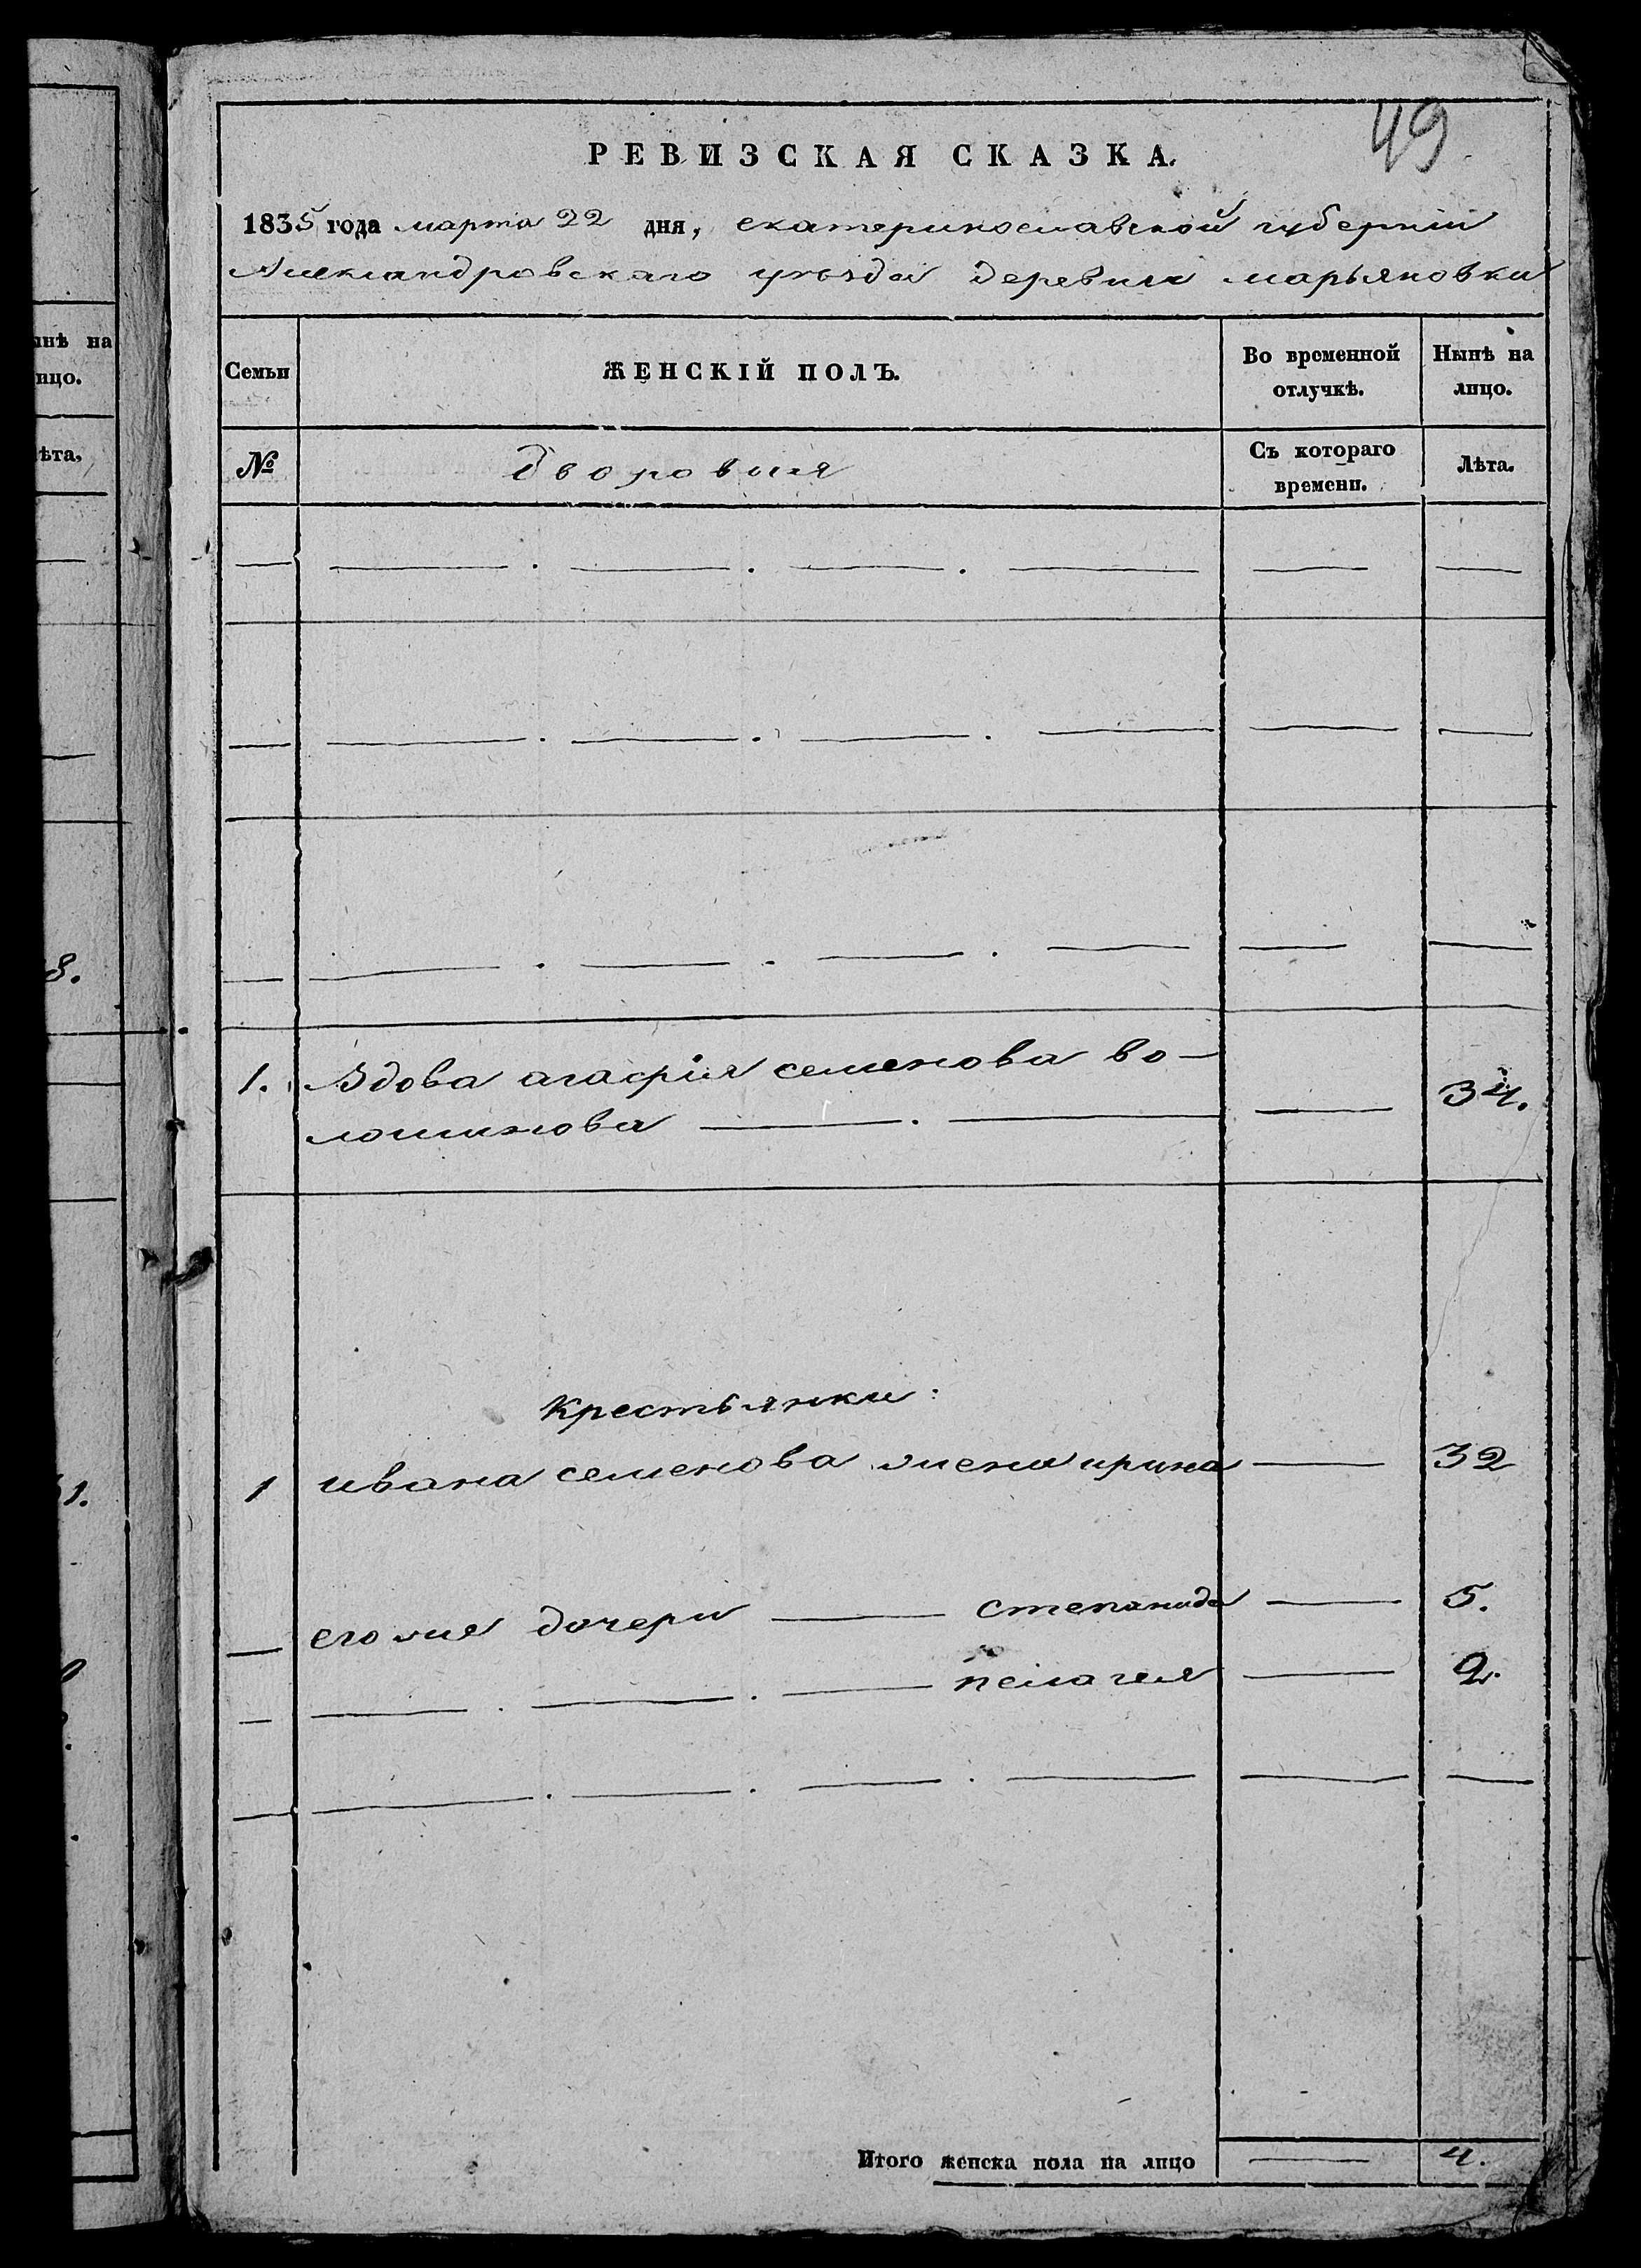 49
РЕВИЗСКАЯ СКАЗКА.
1835 года марта 22 дня, екатеринославской губерніи
Александровскаго уѣзда деревни марьяновки
Семьи
ЖЕНСКІЙ ПОЛЪ.
Во временной отлучкѣ.
Нынѣ на лицо.
№
дворовыя
Съ котораго времени.
Лѣта.
1. Вдова агафія семенова во-
лошинова — . — — 34.
Крестьянки:
1 ивана семенова жена ирина — 32
— его же дочери — степанида — 5.
— — . — . — пелагея — 2.
Итого женска пола на лицо — 4.
нѣ на
ицо.
ѣта.
8.
1.